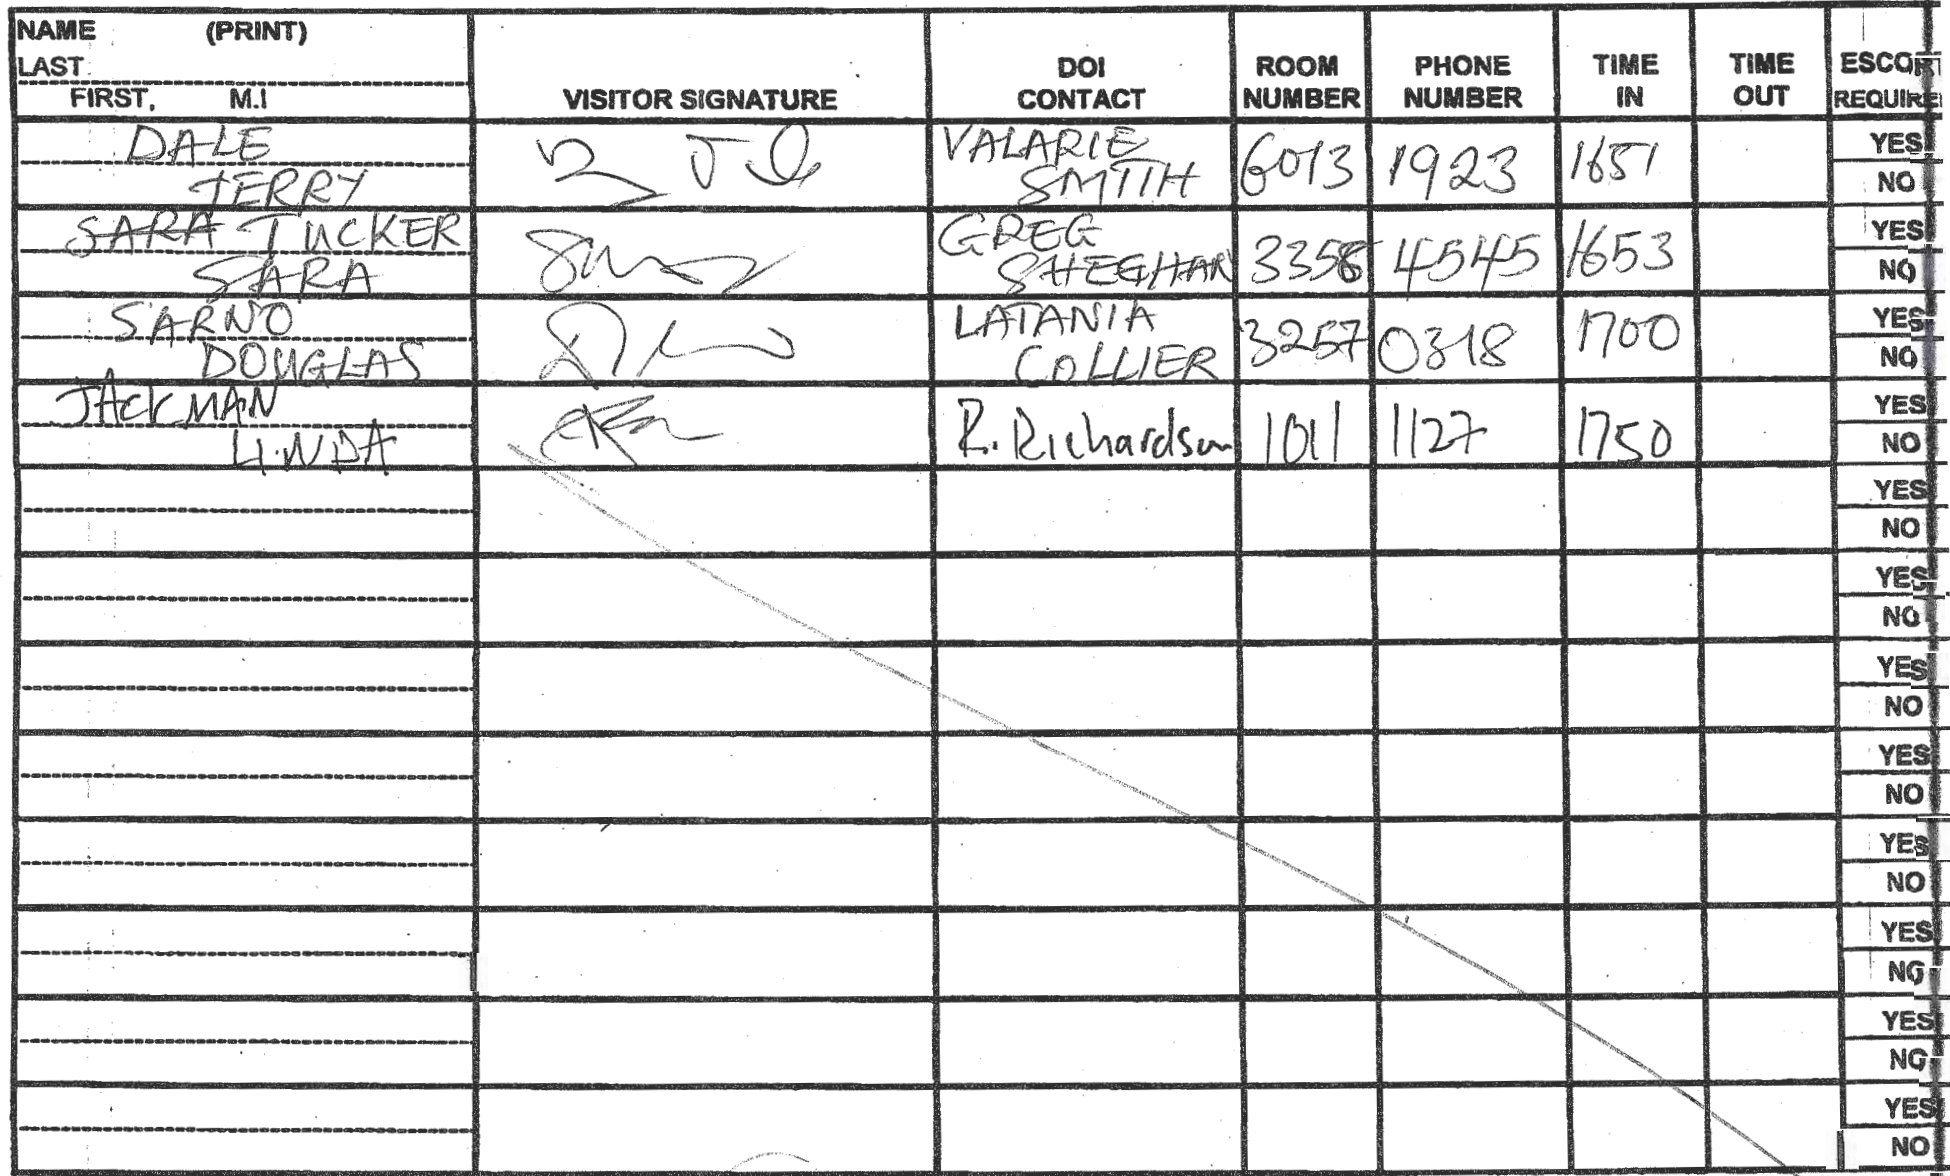 NAME (PRINT)
LAST
FIRST, M.I
VISITOR SIGNATURE
DOI
CONTACT
ROOM
NUMBER
PHONE
NUMBER
TIME
IN
TIME
OUT
ESCORT
REQUIRE
DALE
TERRY
VALARIE
SMITH
6013
1923
1651
YES
NO
SARA TUCKER
SARA
GREG
SHEEHAN
3358
4545
1653
YES
NO
SARNO
DOUGLAS
LATANIA
COLLIER
3257
0318
1700
YES
NO
JACKMAN
LINDA
R. Richardson
1011
1127
1750
YES
NO
YES
NO
YES
NO
YES
NO
YES
NO
YES
NO
YES
NO
YES
NO
YES
NO